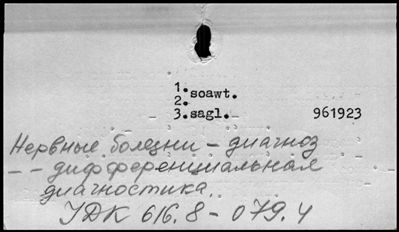 1. soawt.
2.
3. sagl. 961923
Нервные болезни – диагноз
– – дифференциальная
диагностика.
УДК 616.8 – 079.4